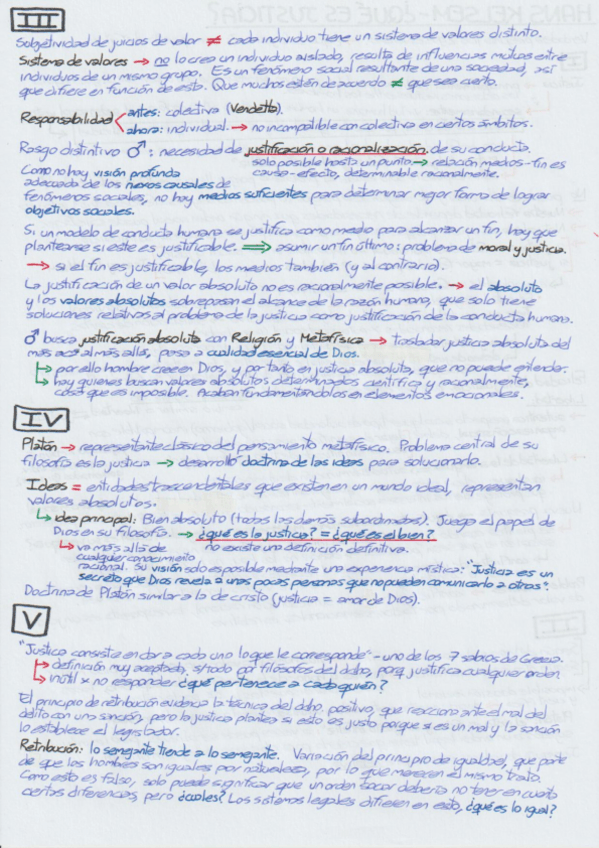 III
Subjetividad de juicios de valor ≠ cada individuo tiene un sistema de valores distinto.
Sistema de valores → no lo crea un individuo aislado, resulta de influencias mutuas entre
individuos de un mismo grupo. Es un fenómeno social resultante de una sociedad, así
que difiere en función de esta. Que muchos estén de acuerdo ≠ que sea cierto.
Responsabilidad antes: colectiva (Vendetta).
ahora: individual. → no incompatible con colectiva en ciertos ámbitos.
Rasgo distintivo ♂: necesidad de justificación o racionalización de su conducta.
solo posible hasta un punto → relación medios-fin es
causa-efecto, determinable racionalmente.
Como no hay visión profunda
adecuada de los nexos causales de
fenómenos sociales, no hay medios suficientes para determinar mejor forma de lograr
objetivos sociales.
Si un modelo de conducta humana se justifica como medio para alcanzar un fin, hay que
plantearse si este es justificable. ⇒ asumir un fin último: problema de moral y justicia.
→ si el fin es justificable, los medios también (y al contrario).
La justificación de un valor absoluto no es racionalmente posible. → el absoluto
y los valores absolutos sobrepasan el alcance de la razón humana, que solo tiene
soluciones relativas al problema de la justicia como justificación de la conducta humana.
♂ busca justificación absoluta con Religión y Metafísica → trasladar justicia absoluta del
más acá al más allá, pasa a cualidad esencial de Dios.
↳ por ello hombre cree en Dios, y por tanto en justicia absoluta, que no puede entender.
↳ hay quienes buscan valores absolutos determinados científica y racionalmente,
cosa que es imposible. Acaban fundamentándolos en elementos emocionales.
IV
Platón → representante clásico del pensamiento metafísico. Problema central de su
filosofía es la justicia → desarrolló doctrina de las ideas para solucionarlo.
Ideas = entidades trascendentales que existen en un mundo ideal, representan
valores absolutos.
↳ idea principal: Bien absoluto (todas las demás subordinadas). Juega el papel de
Dios en su filosofía. → ¿qué es la justicia? = ¿qué es el bien?
↳ va más allá de no existe una definición definitiva.
cualquier conocimiento
racional. Su visión solo es posible mediante una experiencia mística: "Justicia es un
secreto que Dios revela a unas pocas personas que no pueden comunicarlo a otras".
Doctrina de Platón similar a la de cristo (justicia = amor de Dios).
V
"Justicia consiste en dar a cada uno lo que le corresponde" - uno de los 7 sabios de Grecia.
↳ definición muy aceptada, s/todo por filósofos del dcho, porq justifica cualquier orden
↳ inútil x no responder ¿qué pertenece a cada quién?
El principio de retribución evidencia la técnica del dcho. positivo, que reacciona ante el mal del
delito con una sanción, pero la justicia plantea si esto es justo porque si es un mal y la sanción
lo establece el legislador.
Retribución: lo semejante tiende a lo semejante. Variación del principio de igualdad, que parte
de que los hombres son iguales por naturaleza, por lo que merecen el mismo trato.
Como esto es falso, solo puede significar que un orden social debería no tener en cuenta
ciertas diferencias, pero ¿cuáles? Los sistemas legales difieren en esto, ¿qué es lo igual?